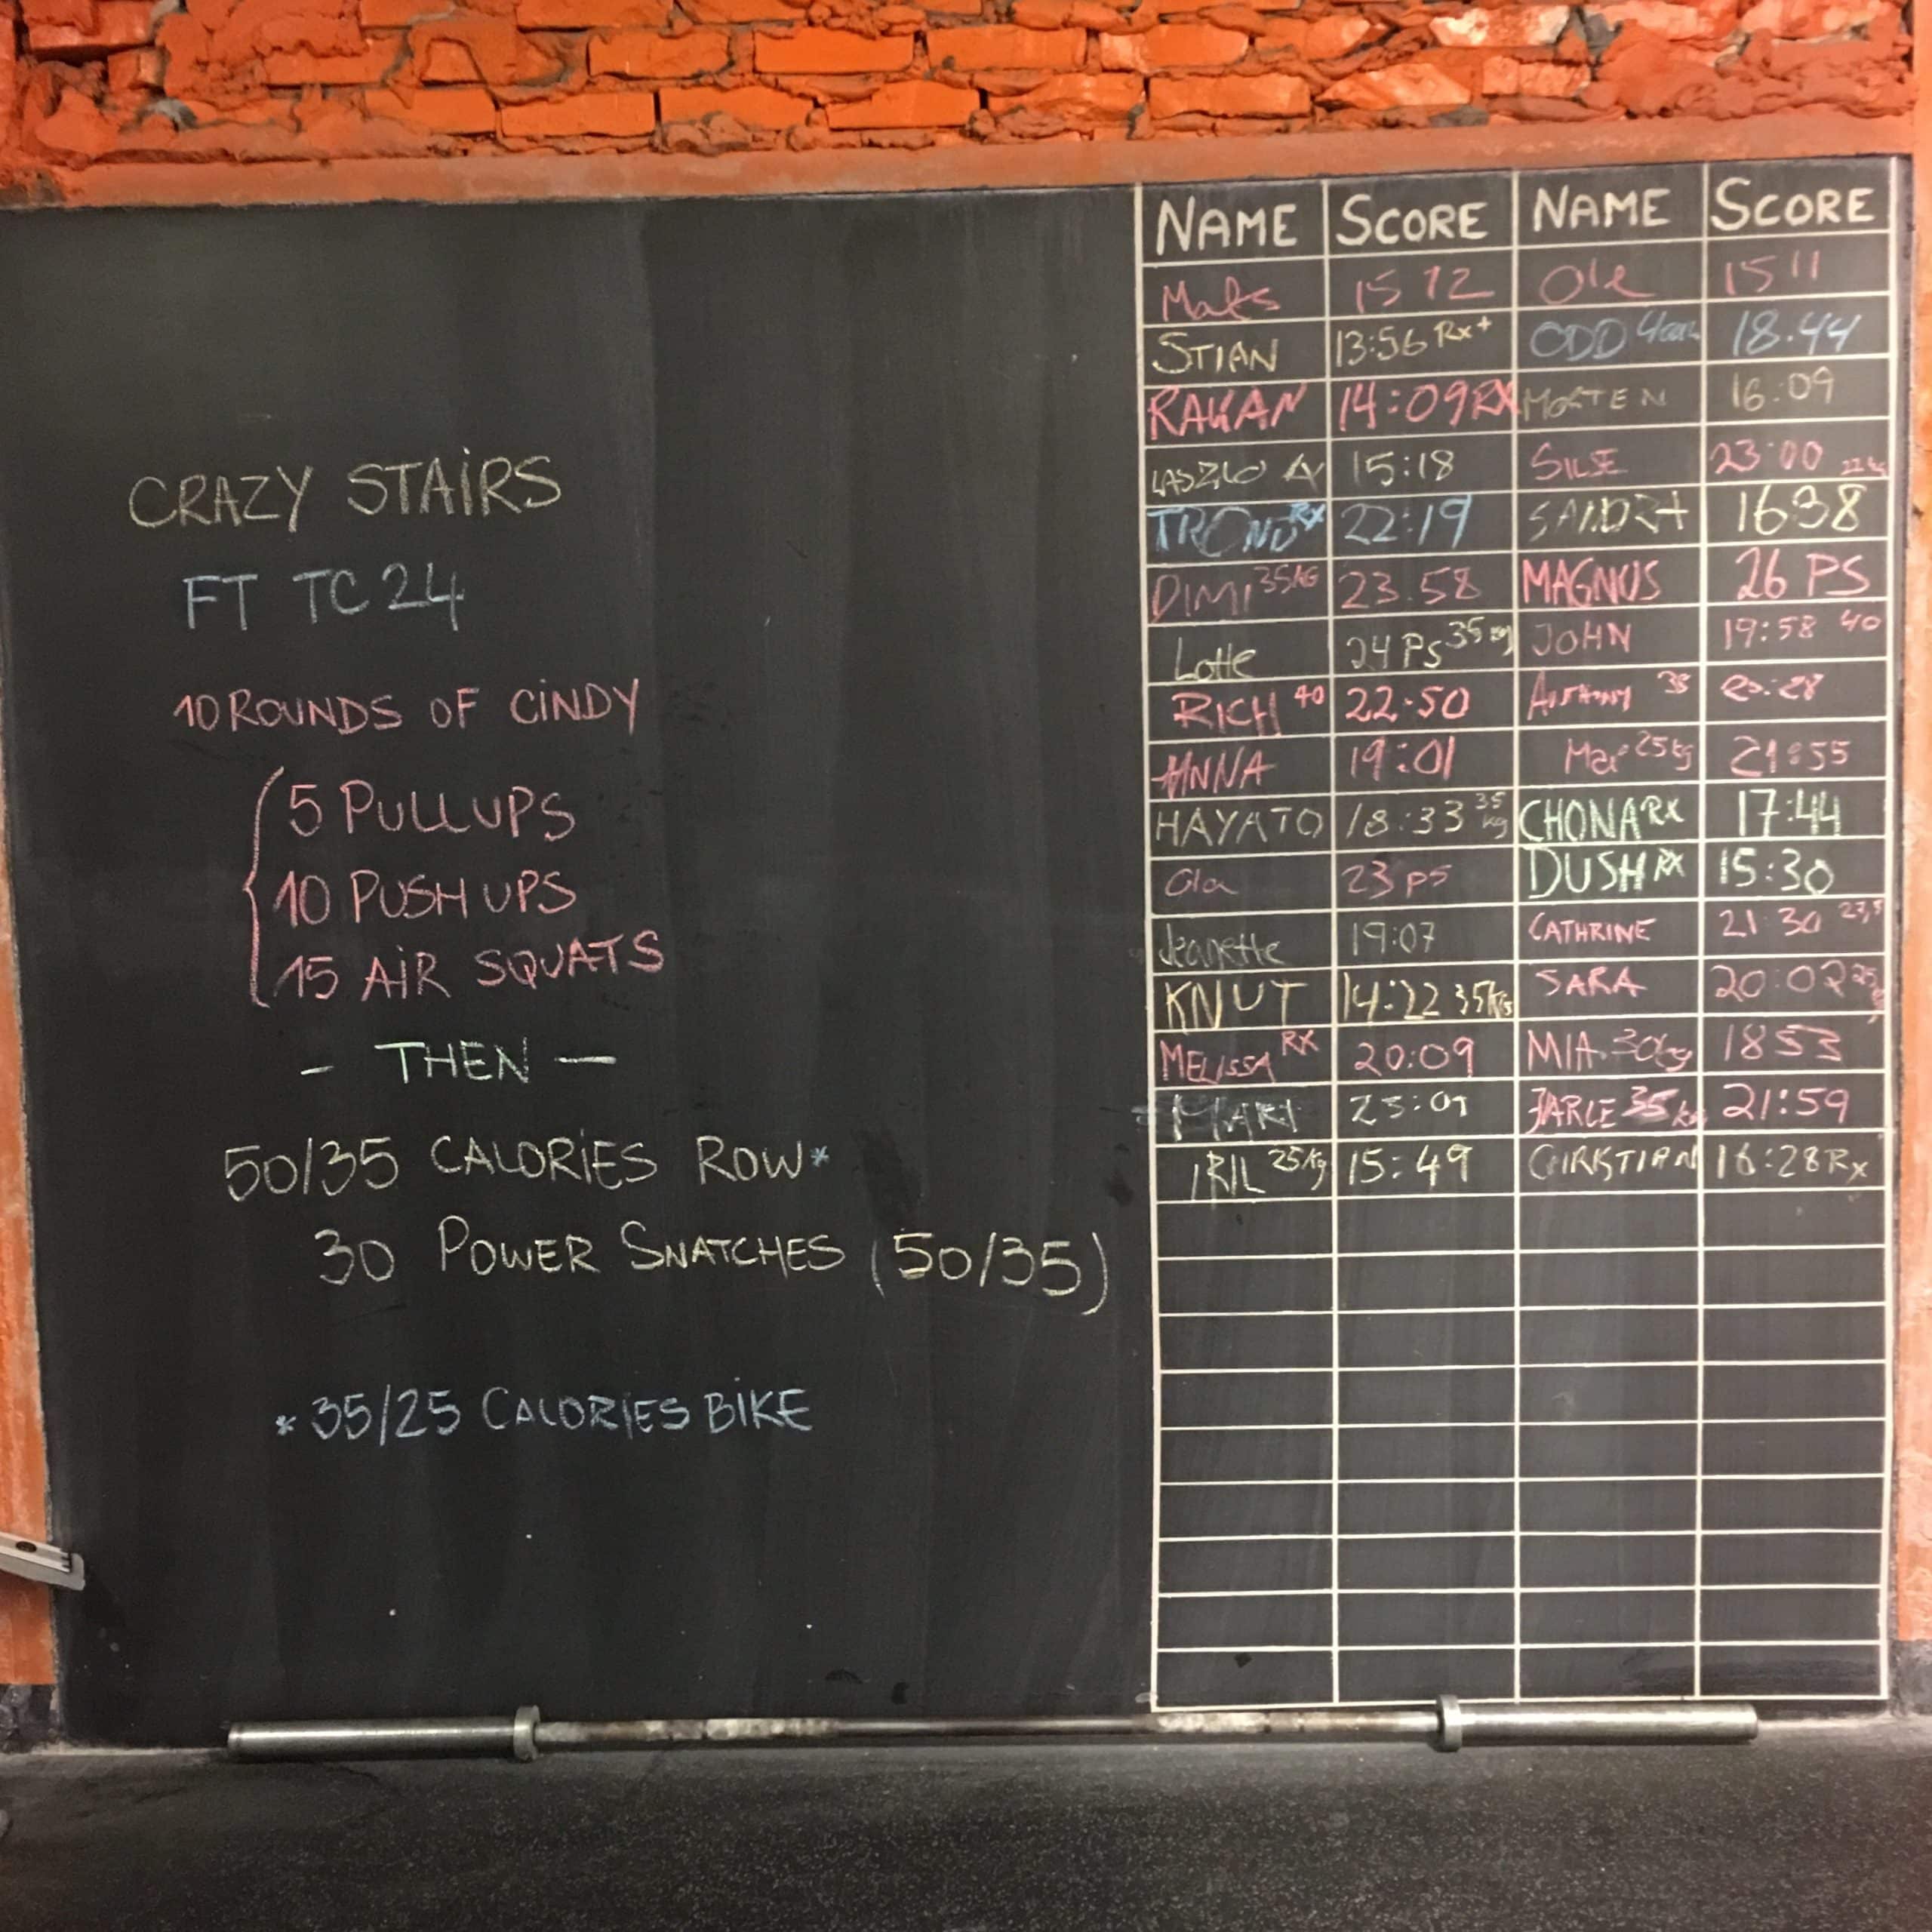 CRAZY STAIRS
FT TC 24
10 ROUNDS OF CINDY
5 PULLUPS
10 PUSH UPS
15 AIR SQUATS
- THEN -
50/35 CALORIES ROW*
30 POWER SNATCHES (50/35)
*35/25 CALORIES BIKE
NAME SCORE NAME SCORE
15 12 Ole 15 11
STIAN 13:56 Rx+ ODD 18.44
RAKAN 14:09 RX MORTEN 16:09
LASZLO 15:18 SILJE 23:00
TROND RX 22:19 SANDRA 1638
DIMI 35KG 23.58 MAGNUS 26 PS
Lotte 24 PS 35 kg JOHN 19:58 40
RICH 40 22:50 35
ANNA 19:01 25kg 21:55
HAYATO 18:33 35 kg CHONA RX 17:44
Ola 23 ps DUSH RX 15:30
Jeanette 19:07 CATHRINE 21 30 27,5
KNUT 14:22 35KG SARA 20:02
MELISSA RX 20:09 MIA 30kg 1853
MARI 23:01 JARLE 35kg 21:59
IRIL 25kg 15:49 CHRISTIAN 16:28 Rx